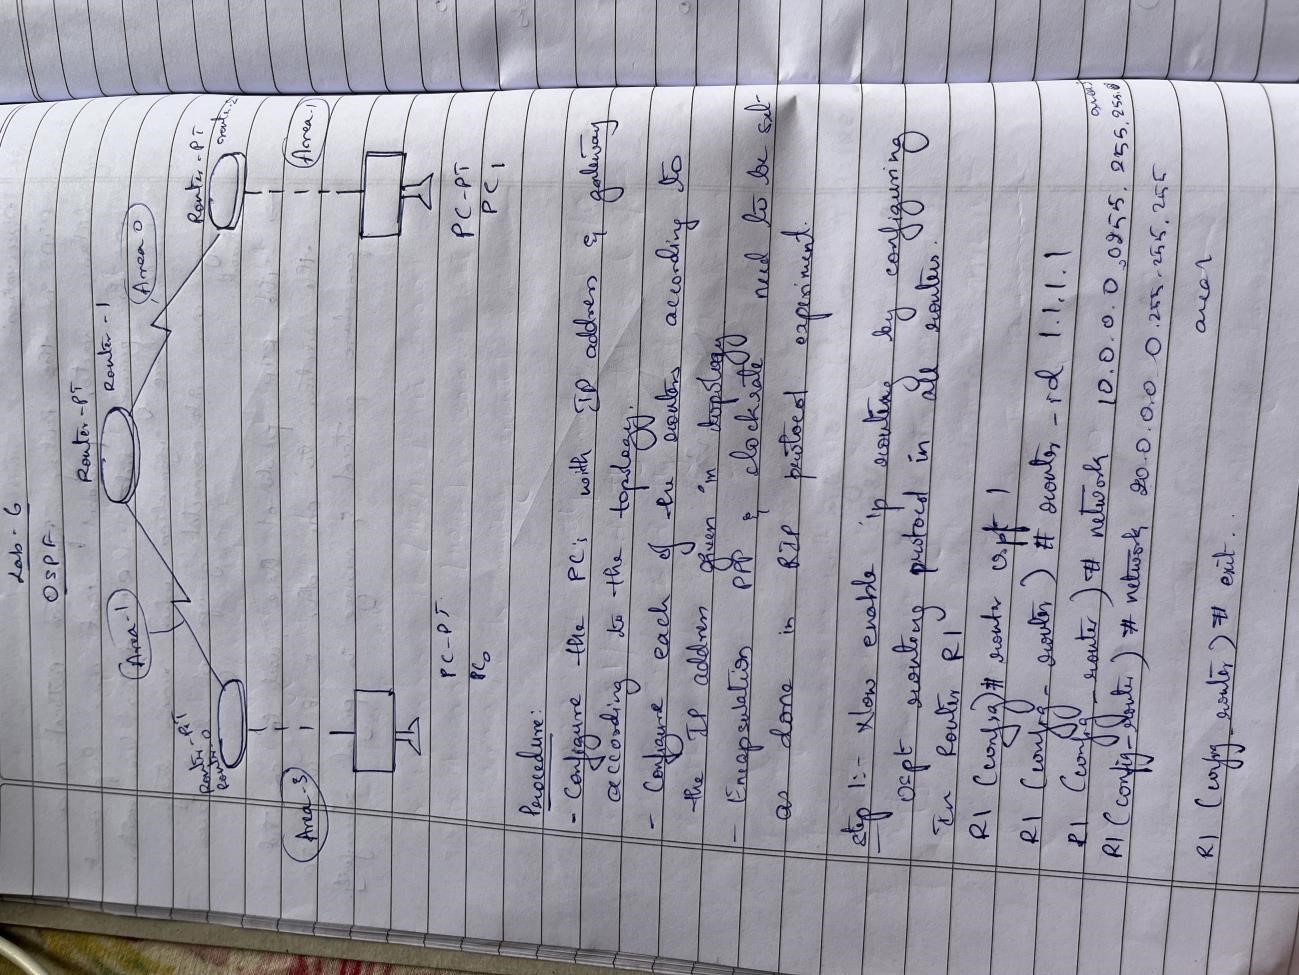 Lab - 6
OSPF
Router-PT
Router-1
Area-1
Area 0
Router-PT
Router-0
Router-PT
router-2
Area-3
Area-1
PC-PT
PC0
PC-PT
PC1
Procedure:
- Configure the PC's with IP address & gateway
according to the topology.
- Configure each of the routers according to
the IP address given in topology
- Encapsulation PPP & clockrate need to be set
as done in RIP protocol experiment.
Step 1:- Now enable ip routing by configuring
ospf routing protocol in all routers.
In Router R1
R1 (config)# router ospf 1
R1 (config-router)# router-id 1.1.1.1
R1 (config-router)# network 10.0.0.0 0.255.255.255
R1 (config-router)# network 20.0.0.0 0.255.255.255
area 1
R1 (config-router)# exit.